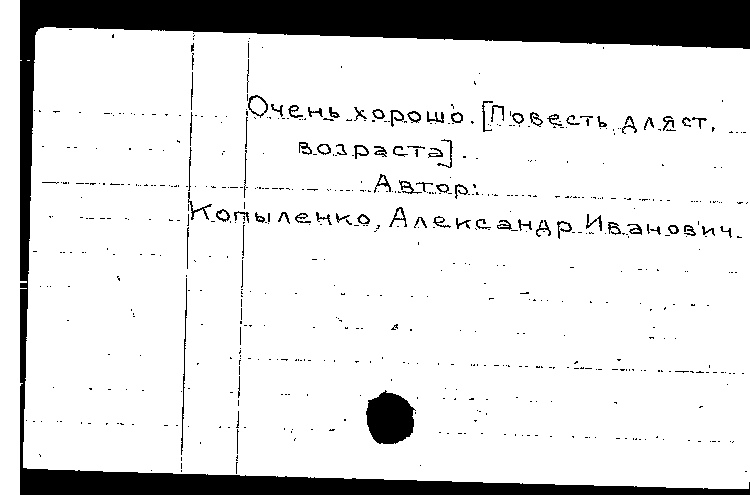 Очень хорошо. [Повесть для ст.
возраста].
Автор:
Копыленко, Александр Иванович.